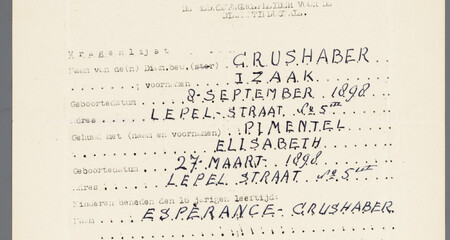 V r a g e n l i j s t
Naam van de(n) Dien.bew.(ster) GRUSHABER
; voornamen IZAAK
Geboortedatum 8-SEPTEMBER 1898
Adres LEPEL-STRAAT No 5 III
Gehuwd met (naam en voornamen) PIMENTEL
ELISABETH
Geboortedatum 27-MAART-1898
Adres LEPEL STRAAT No 5 III
Kinderen beneden den 16 jarigen leertijd:
Naam ESPERANCE-GRUSHABER